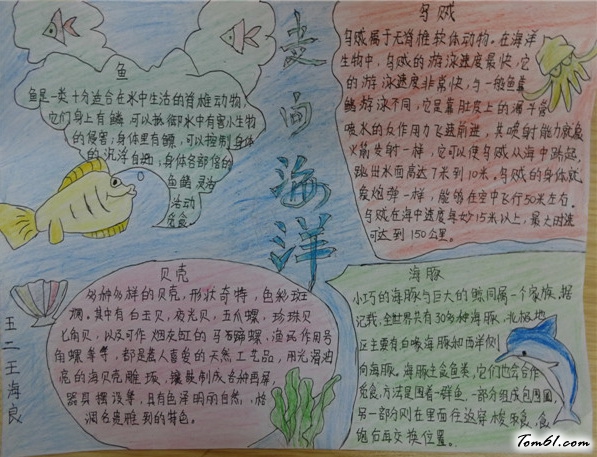 走向海洋
鱼
鱼是一类十分适合在水中生活的脊椎动物,
它们身上有鳞,可以抵御水中有害小生物
的侵害;身体里有鳔,可以控制身体
的沉浮自由;身体各部位的
鱼鳍灵活
活动
乌贼
乌贼属于无脊椎软体动物。在海洋
生物中,乌贼的游泳速度最快,它
的游泳速度非常快,与一般鱼靠
鳍游泳不同,它是靠肚皮上的漏斗管
喷水的反作用力飞速前进,其喷射能力就象
火箭发射一样,它可以使乌贼从海中跳起,
跳出水面高达7米到10米。乌贼的身体就
象炮弹一样,能够在空中飞行50米左右。
乌贼在海中速度每秒15米以上,最大时速
可达到150公里。
贝壳
多种多样的贝壳,形状奇特,色彩斑
斓。其中有白玉贝,夜光贝,五爪螺,珍珠贝
七角贝,以及可作烟灰缸的马蹄蹄螺,渔民作用号
角螺等等,都是惹人喜爱的天然工艺品,用光滑油
亮的海贝壳雕琢,镶嵌制成各种画屏,
器具摆设等,具有色泽明丽自然,格
调名贵雅到的特色。
海豚
小巧的海豚与巨大的鲸同属一个家族,据
记载,全世界共有30多种海豚,北极地
区主要有白喙海豚和西洋侧
向海豚。海豚主食鱼类,它们也会合作
觅食,方法是围着一群鱼,一部分组成包围圈,
另一部分则在里面往返穿梭取食,食
饱后再交换位置。
五二王海良
Tom61.com